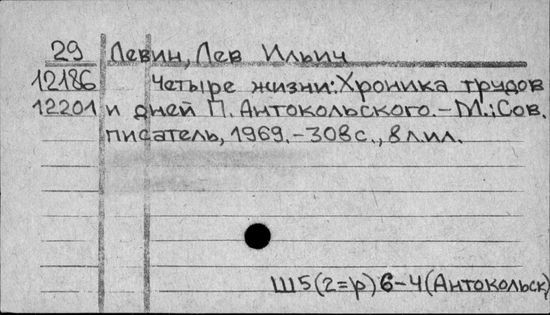 29 Левин, Лев Ильич
12186 Четыре жизни: Хроника трудов
12201 и дней П. Антокольского. – М.: Сов.
писатель, 1969. – 308 с., 8 л. ил.
Ш5(2=р)6-4(Антокольск)